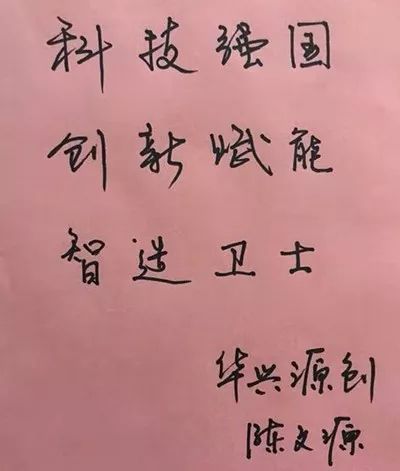 科技强国
创新赋能
智造卫士
华兴源创
陈文源